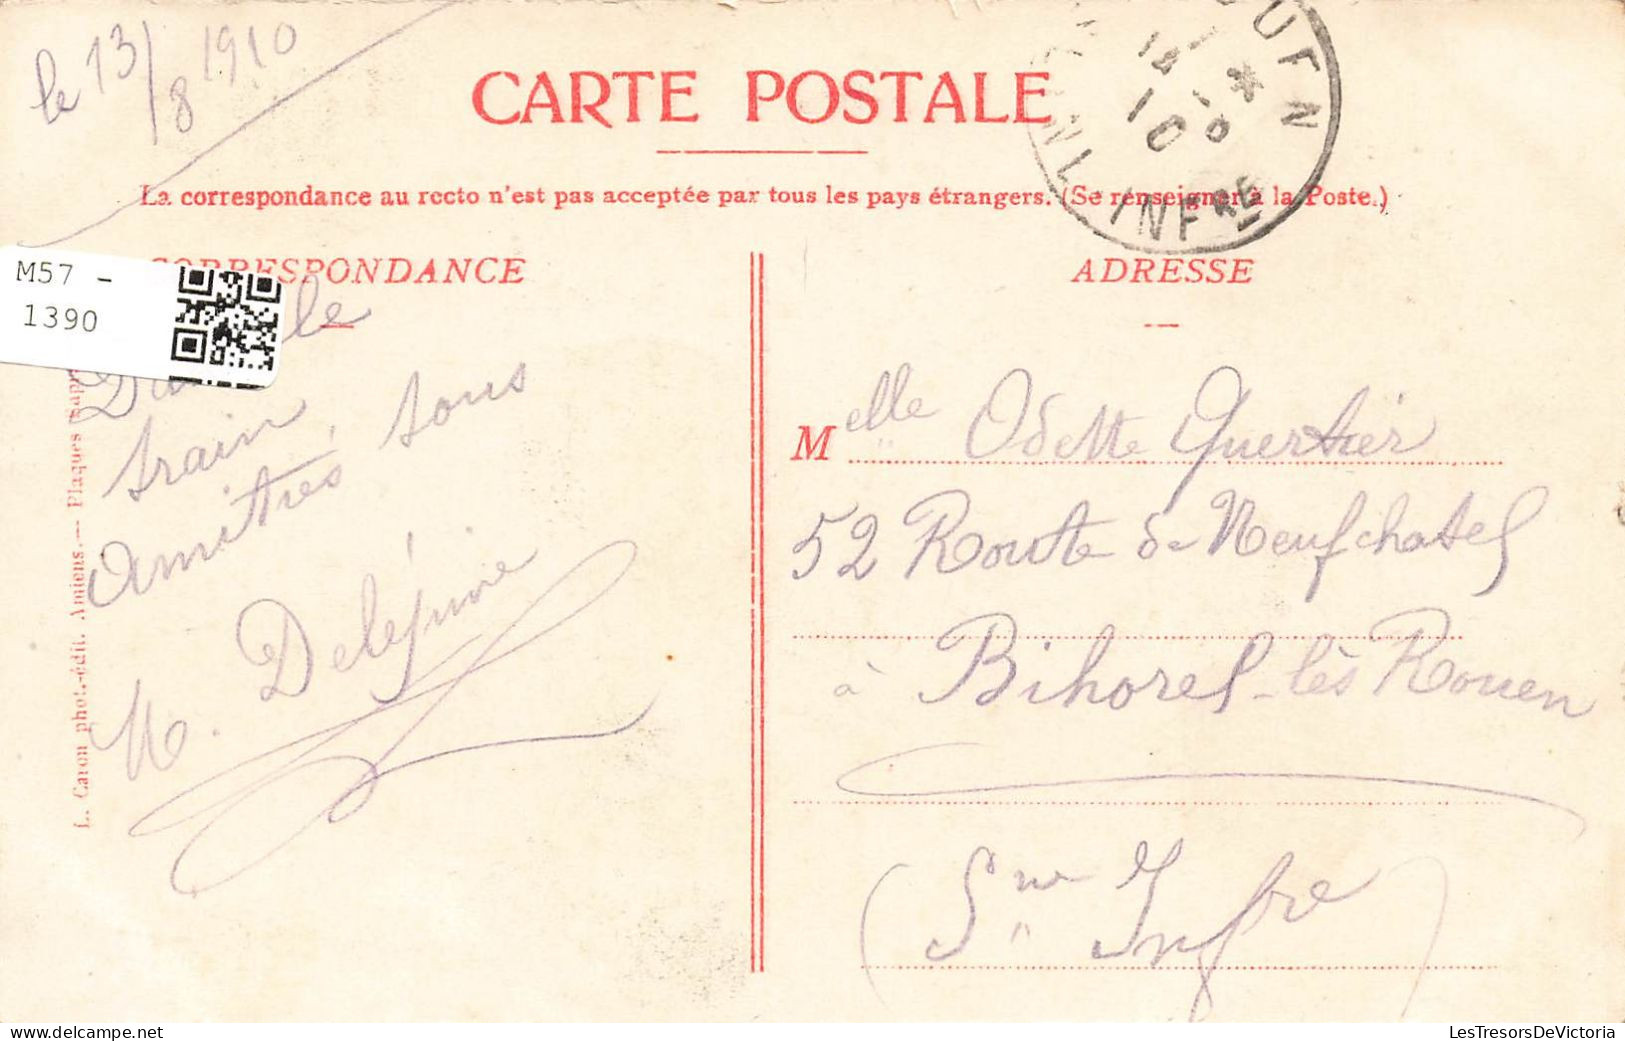 le 13/8 1910
CARTE POSTALE
La correspondance au recto n'est pas acceptée par tous les pays étrangers. (Se renseigner à la Poste.)
ROUEN
10
INFRE
M57 -
1390
CORRESPONDANCE
le
train
Amitiés, tous
L. Caron phot.-édit. Amiens. — Plaques
ADRESSE
Melle Odette Quertier
52 Route de Neufchatel
à Bihorel-lès Rouen
(Sne Infre)
LesTresorsDeVictoria